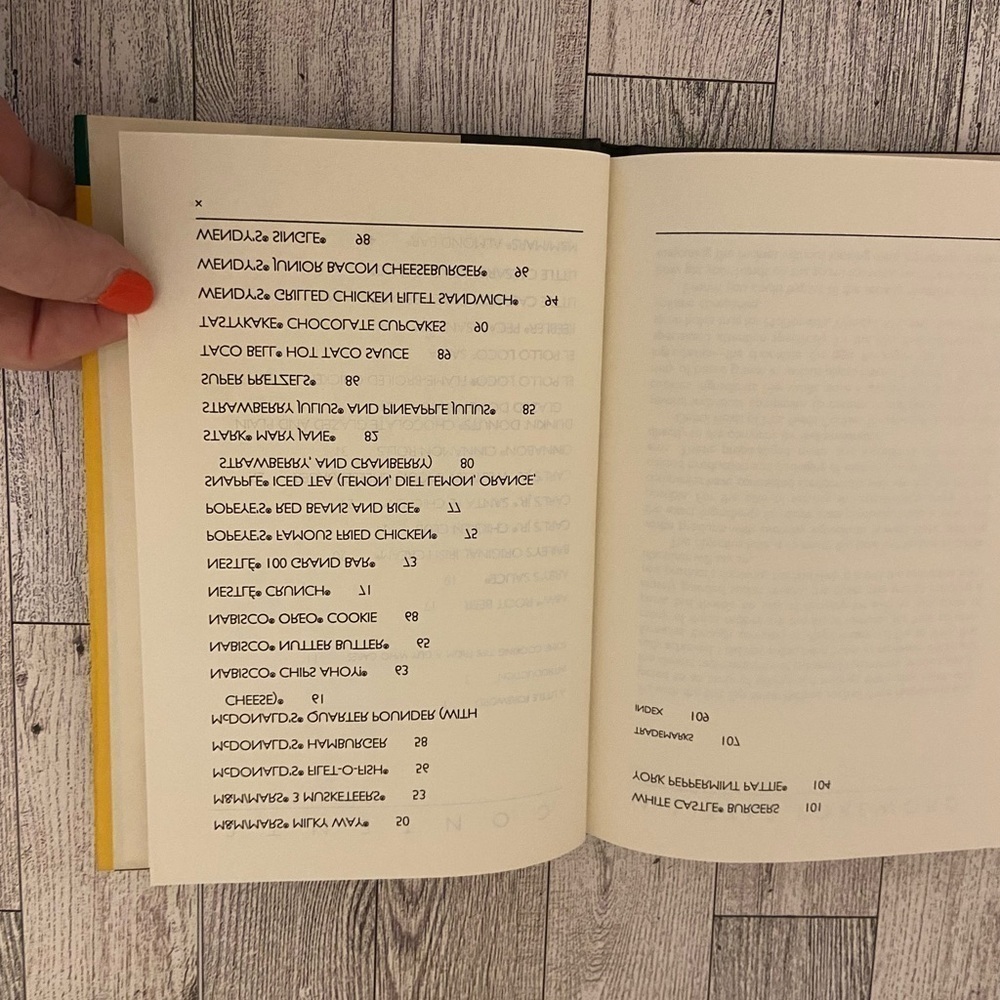 M&M/MARS® MILKY WAY® 50
M&M/MARS® 3 MUSKETEERS® 53
McDONALD'S® FILET-O-FISH® 56
McDONALD'S® HAMBURGER 58
McDONALD'S® QUARTER POUNDER (WITH
CHEESE)® 61
NABISCO® CHIPS AHOY!® 63
NABISCO® NUTTER BUTTER® 65
NABISCO® OREO® COOKIE 68
NESTLÉ® CRUNCH® 71
NESTLÉ® 100 GRAND BAR® 73
POPEYE'S® FAMOUS FRIED CHICKEN® 75
POPEYE'S® RED BEANS AND RICE® 77
SNAPPLE® ICED TEA (LEMON, DIET LEMON, ORANGE,
STRAWBERRY, AND CRANBERRY) 80
STARK® MARY JANE® 82
STRAWBERRY JULIUS® AND PINEAPPLE JULIUS® 83
SUPER PRETZELS® 86
TACO BELL® HOT TACO SAUCE 89
TASTYKAKE® CHOCOLATE CUPCAKES 90
WENDY'S® GRILLED CHICKEN FILLET SANDWICH® 94
WENDY'S® JUNIOR BACON CHEESEBURGER® 96
WENDY'S® SINGLE® 98
x
WHITE CASTLE® BURGERS 101
YORK PEPPERMINT PATTIE® 104
TRADEMARKS 107
INDEX 109